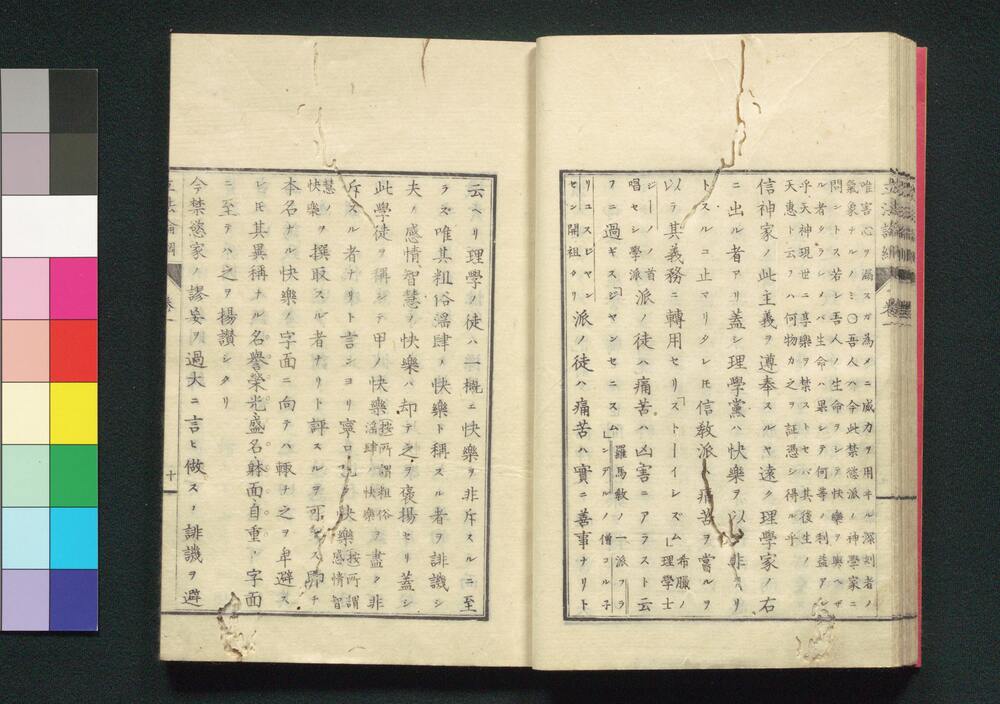 唯害心ヲ溺スガ為メニ威力ヲ用ヰル深刻者ノ
氣象ナルノミ〇吾人ハ今此禁慾派ノ神學家ニ
問ントス若シ吾人ノ生命ヲシテ快樂ヲ與ヘザ
ル者タラシメバ生命ハ果シテ何等ノ利益アン
乎天神現世ニ享樂ヲ禁ストセバ其後生ノ
天惠ト云フハ何物カ之ヲ証憑シ得ル乎
信神家ノ此主義ヲ遵奉スルヤ遠ク理學家ノ右
ニ出ル者アリ蓋シ理學黨ハ快樂ヲ以テ非ナリ
トスルコ止マリタレ𪜈信教派ハ痛苦ヲ當ルヲ
以テ其義務ニ轉用セリ「ストーイレズム」希臘ノ理學士
ジーノノ首唱セシ學派派ノ徒ハ痛苦ハ凶害ニアラスト云
フニ過ギス「ジャンセニスム」羅馬敎ノ一派ヲランデルノ僧コル子
リユスジヤンセン開祖タリ派ノ徒ハ痛苦ハ實ニ善事ナリト
云ヘリ理學ノ徒ハ一概ニ快樂ヲ非斥スルニ至
ラズ唯其粗俗滛肆ノ快樂ト稱スル者ヲ誹譏シ
夫ノ感情智慧ノ快樂ハ却テ之ヲ褒揚セリ蓋シ
此學徒ヲ稱シテ甲ノ快樂按所謂粗俗滛肆ノ快樂ハヲ盡ク非
斥スル者ナリト言ンヨリ寧ロ乙ノ快樂按所謂感情智
慧ノ快樂ヲ撰取スル者ナリト評スルヲ可トス即チ
本名ナル快樂ノ字面ニ向テハ輙チ之ヲ卑避ス
ヒ𪜈其異稱ナル名譽榮光盛名躰面自重ノ字面
ニ至テハ之ヲ揚讃シタリ
今禁慾家ノ謬妄ヲ過大ニ言ヒ做スノ誹譏ヲ避
立法論綱 卷一
十